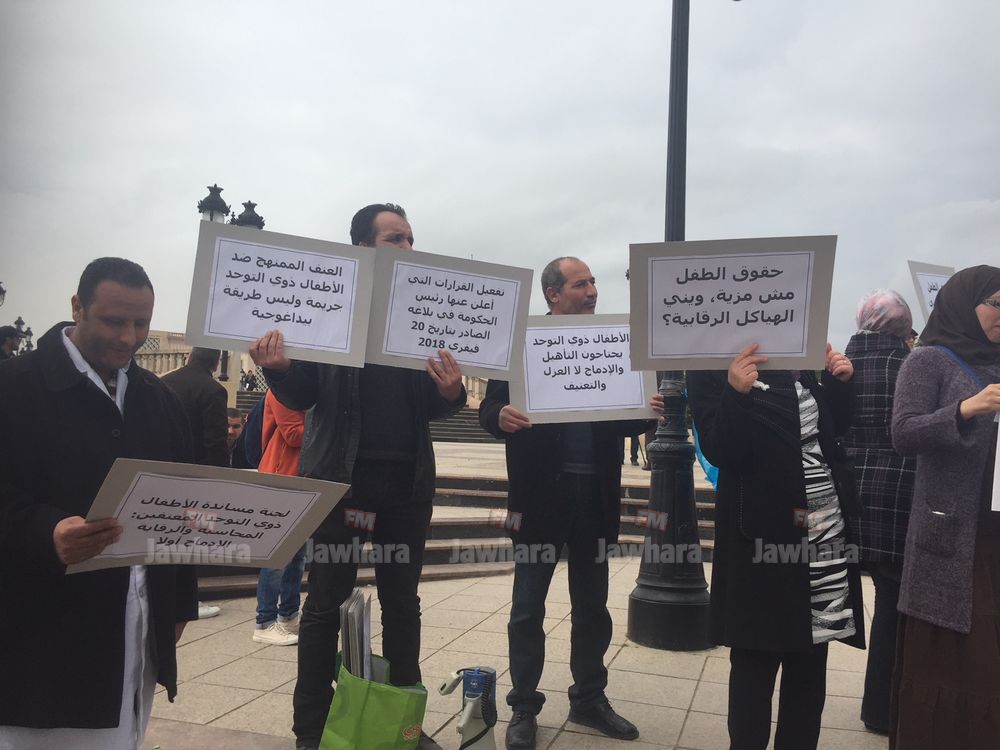 العنف الممنهج ضد
الأطفال ذوي التوحد
جريمة وليس طريقة
بيداغوجية
تفعيل القرارات التي
أعلن عنها رئيس
الحكومة في بلاغه
الصادر بتاريخ 20
فيفري 2018
الأطفال ذوي التوحد
يحتاجون التأهيل
والإدماج لا العزل
والتعنيف
حقوق الطفل
مش مزية، ويني
الهياكل الرقابية؟
لجنة مساندة الأطفال
ذوي التوحد المعنفين:
المحاسبة والرقابة
الإدماج أولا
FM
Jawhara
FM
Jawhara
FM
Jawhara
FM
Jawhara
Jawhara